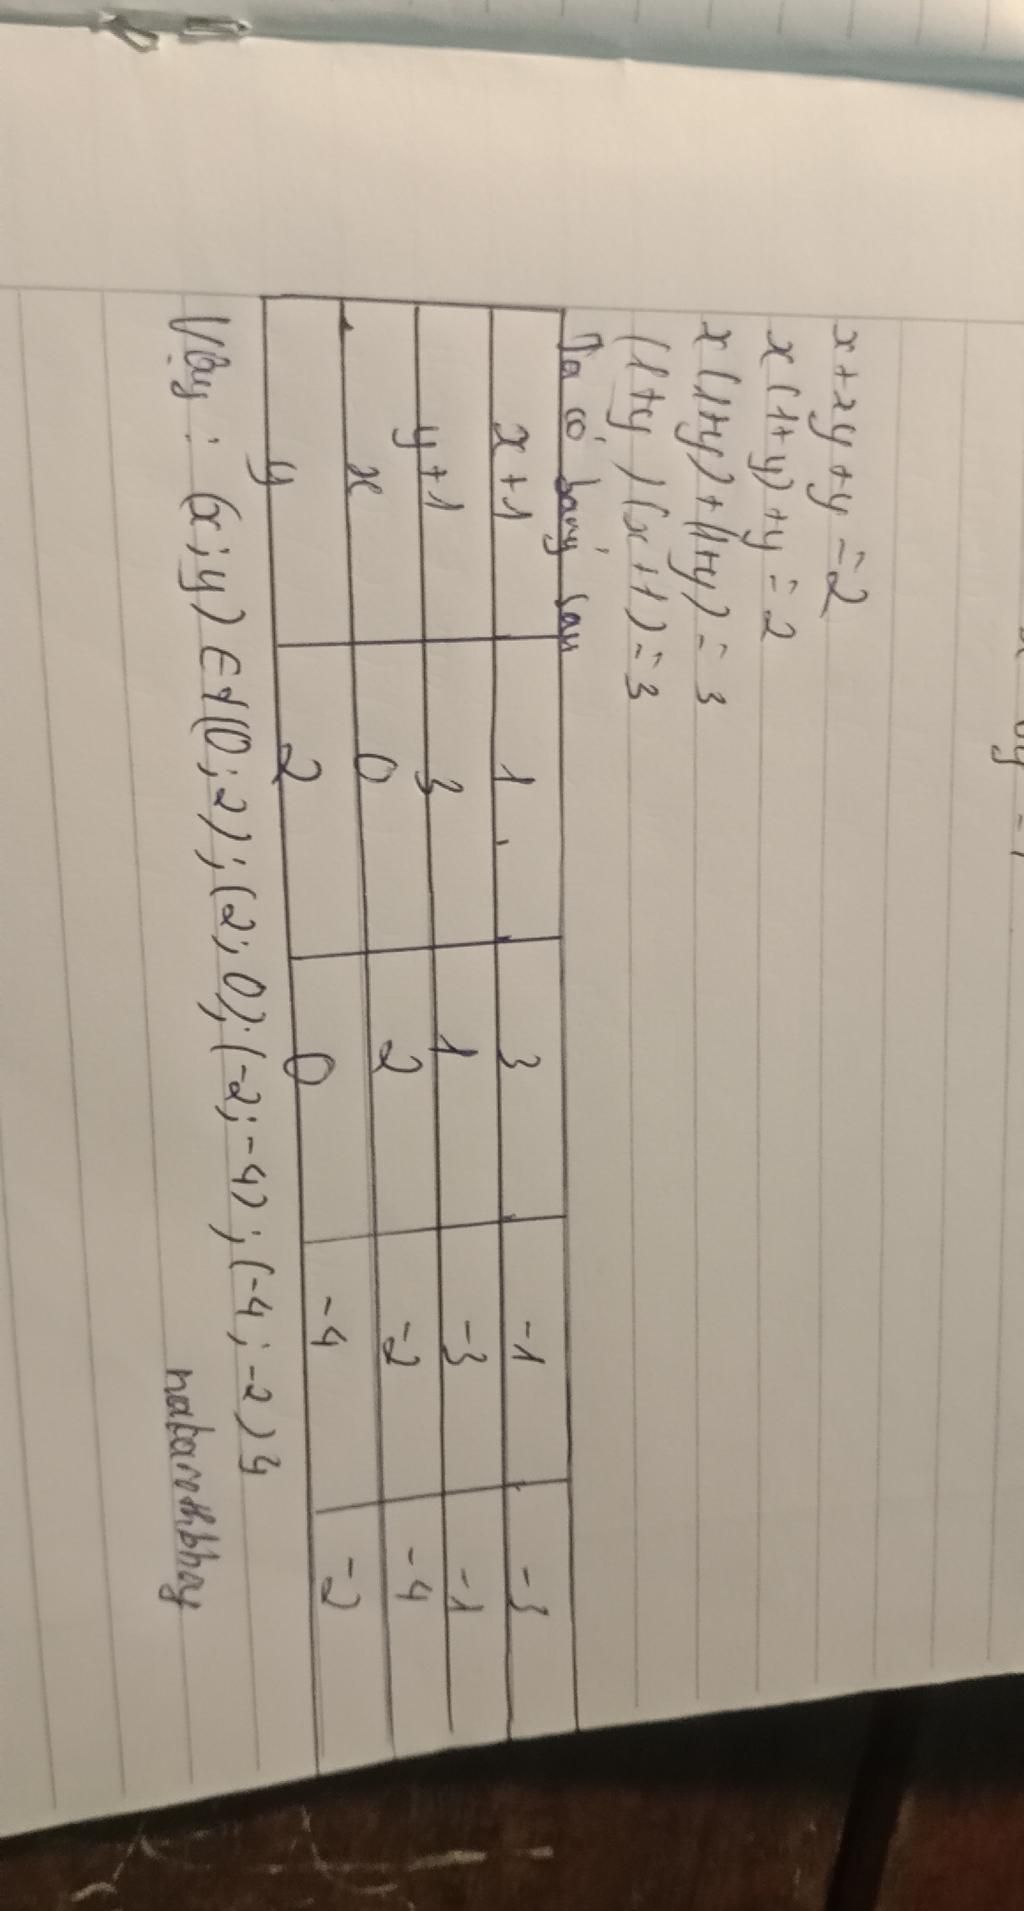 x+xy+y=2
x(1+y)+y=2
x(1+y)+(1+y)=3
(1+y)(x+1)=3
Ta có bảng sau
x+1 1 3 -1 -3
y+1 3 1 -3 -1
x 0 2 -2 -4
y 2 0 -4 -2
Vậy: (x;y) ∈ {(0;2);(2;0);(-2;-4);(-4;-2)}